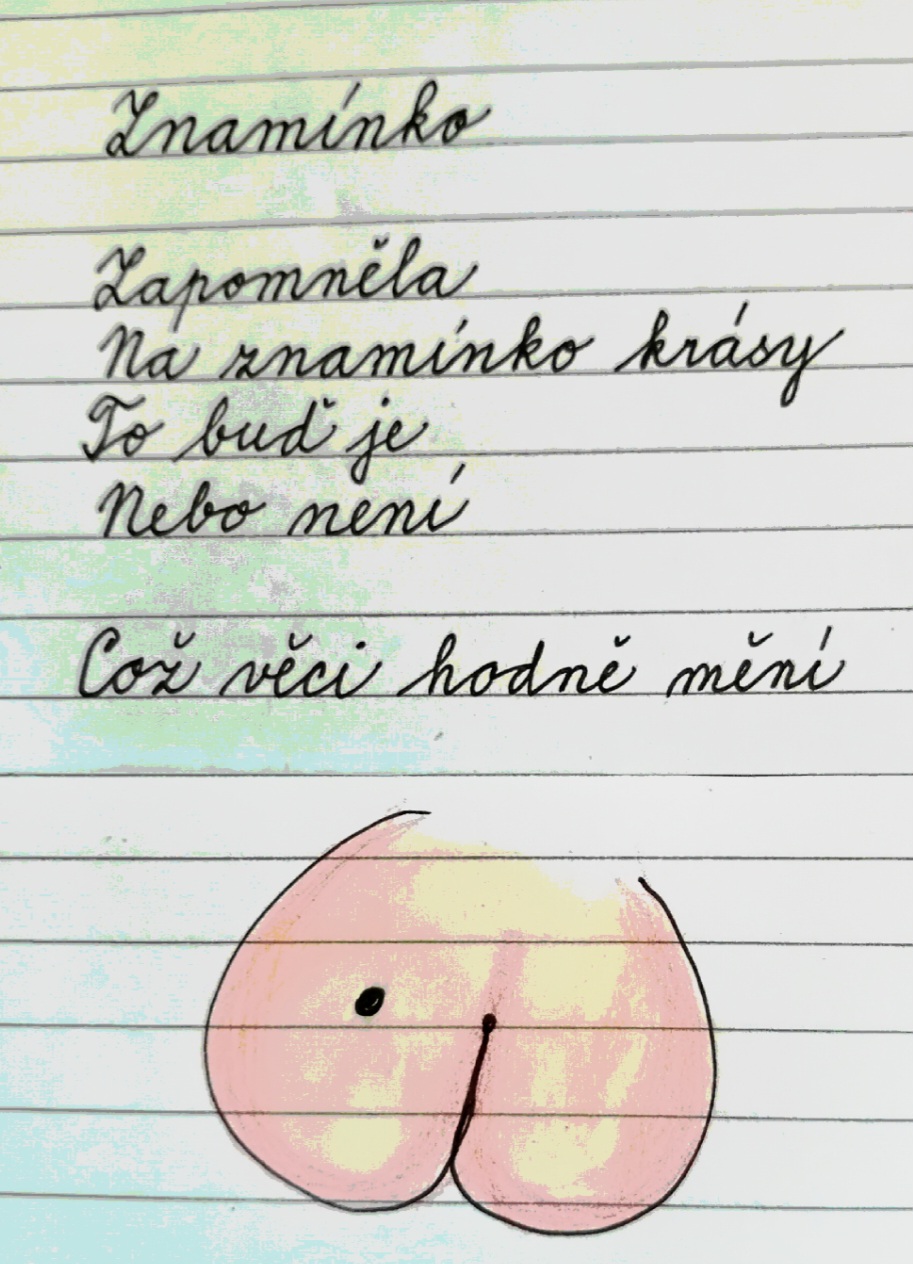 Znamínko
Zapomněla
Na znamínko krásy
To buď je
Nebo není
Což věci hodně mění